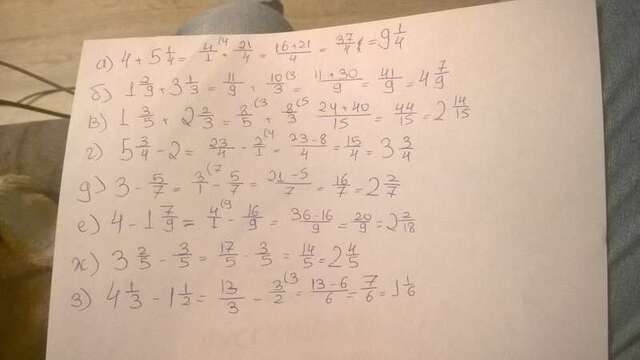 а) 4 + 5 1/4 = 4/1 (4 + 21/4 = 16+21/4 = 37/4 = 9 1/4
б) 1 2/9 + 3 1/3 = 11/9 + 10/3 (3 = 11+30/9 = 41/9 = 4 7/9
в) 1 3/5 + 2 2/3 = 8/5 (3 + 8/3 (5 24+40/15 = 44/15 = 2 14/15
г) 5 3/4 - 2 = 23/4 - 2/1 (4 = 23-8/4 = 15/4 = 3 3/4
д) 3 - 5/7 = 3/1 (7 - 5/7 = 21-5/7 = 16/7 = 2 2/7
е) 4 - 1 7/9 = 4/1 (9 - 16/9 = 36-16/9 = 20/9 = 2 2/18
ж) 3 2/5 - 3/5 = 17/5 - 3/5 = 14/5 = 2 4/5
з) 4 1/3 - 1 1/2 = 13/3 - 3/2 (3 = 13-6/6 = 7/6 = 1 1/6